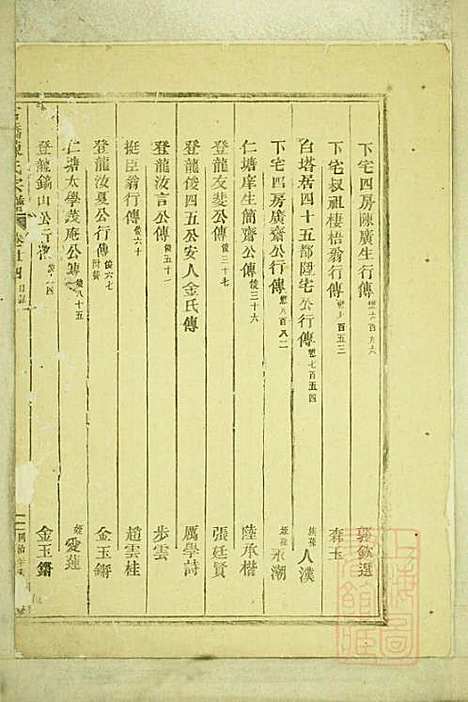 下宅四房陳廣生行傳 郭欽選
下宅叔祖棲梧翁行傳 百五三 森玉
白塔居四十五都陞宅公行傳 七百五四 族孫 人漢
下宅四房廣齋公行傳 八百八二 姪孫 承潮
仁塘庠生簡齋公傳 後三十六 陸承楷
登龍友斐公傳 後三十七 張廷賢
登龍後四五公安人金氏傳 厲學詩
登龍汝言公傳 後五十一 步雲
挺臣翁行傳 後六十 趙雲桂
登龍汝夏公行傳 後六七 附讚 金玉鏘
仁塘太學護庵公傳 後八十五 姪 愛蓮
登龍鎬山公行 金玉鏘
陳氏宗譜 卷廿四 目錄